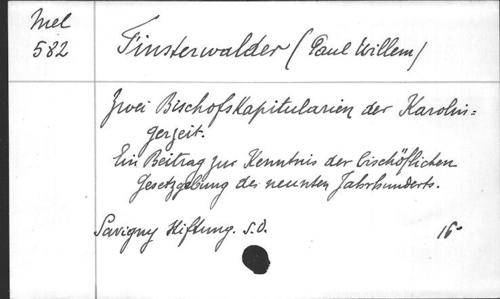 Mel
582
Finsterwalder (Paul Willem)
Zwei Bischofskapitularien der Karolin=
gerzeit.
Ein Beitrag zur Kenntnis der bischöflichen
Gesetzgebung des neunten Jahrhunderts.
Savigny Stiftung. S.O. 16°